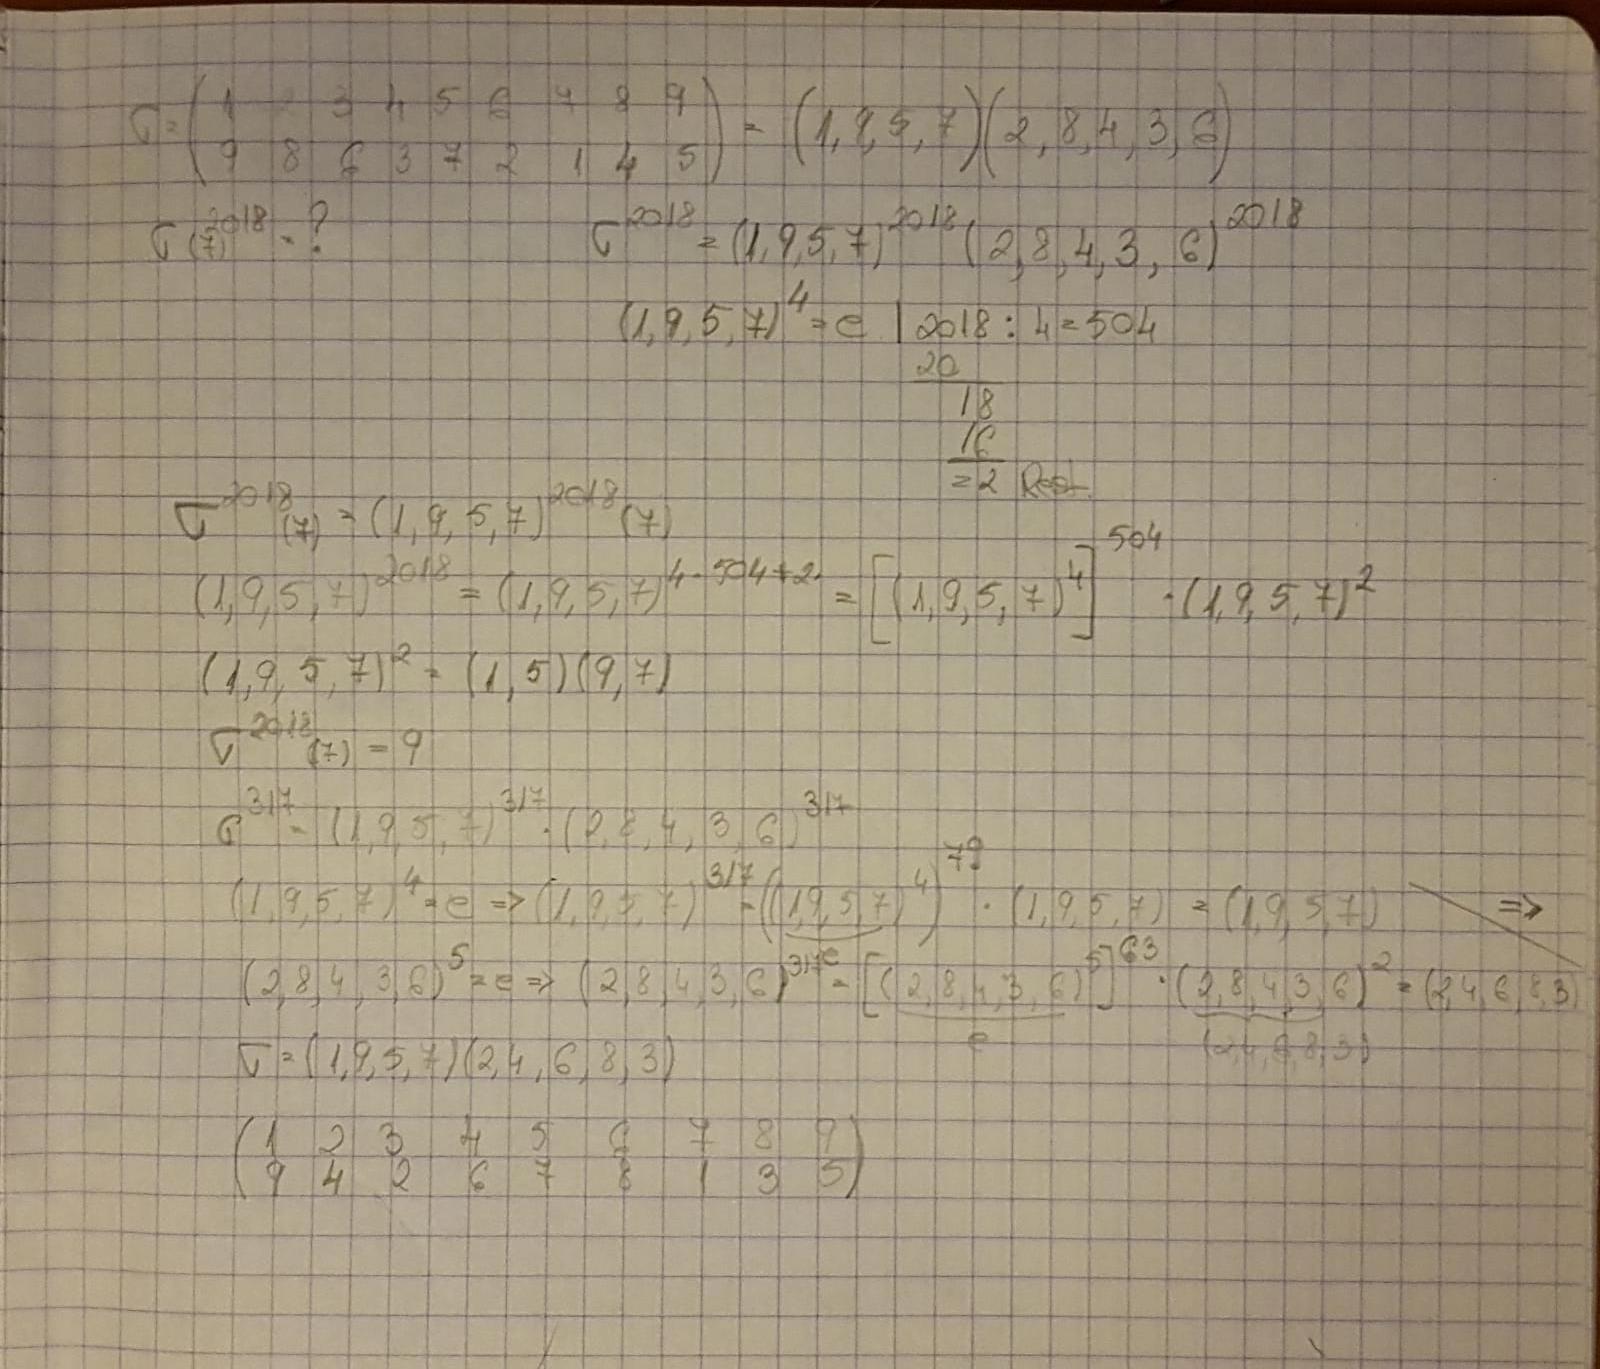 σ = ( 1 2 3 4 5 6 7 8 9 ) = (1,9,5,7)(2,8,4,3,6)
( 9 8 6 3 7 2 1 4 5 )
σ^2018 (7) = ? σ^2018 = (1,9,5,7)^2018 (2,8,4,3,6)^2018
(1,9,5,7)^4 = e | 2018 : 4 = 504
20
18
16
= 2 Rest.
σ^2018 (7) = (1,9,5,7)^2018 (7)
(1,9,5,7)^2018 = (1,9,5,7)^4·504+2 = [(1,9,5,7)^4]^504 · (1,9,5,7)^2
(1,9,5,7)^2 = (1,5)(9,7)
σ^2018 (7) = 9
σ^317 = (1,9,5,7)^317 · (2,8,4,3,6)^317
(1,9,5,7)^4 = e => (1,9,5,7)^317 = ((1,9,5,7)^4)^79 · (1,9,5,7) = (1,9,5,7) =>
e
(2,8,4,3,6)^5 = e => (2,8,4,3,6)^317 = [(2,8,4,3,6)^5]^63 · (2,8,4,3,6)^2 = (2,4,6,8,3)
e (2,4,6,8,3)
σ = (1,9,5,7)(2,4,6,8,3)
( 1 2 3 4 5 6 7 8 9 )
( 9 4 2 6 7 8 1 3 5 )